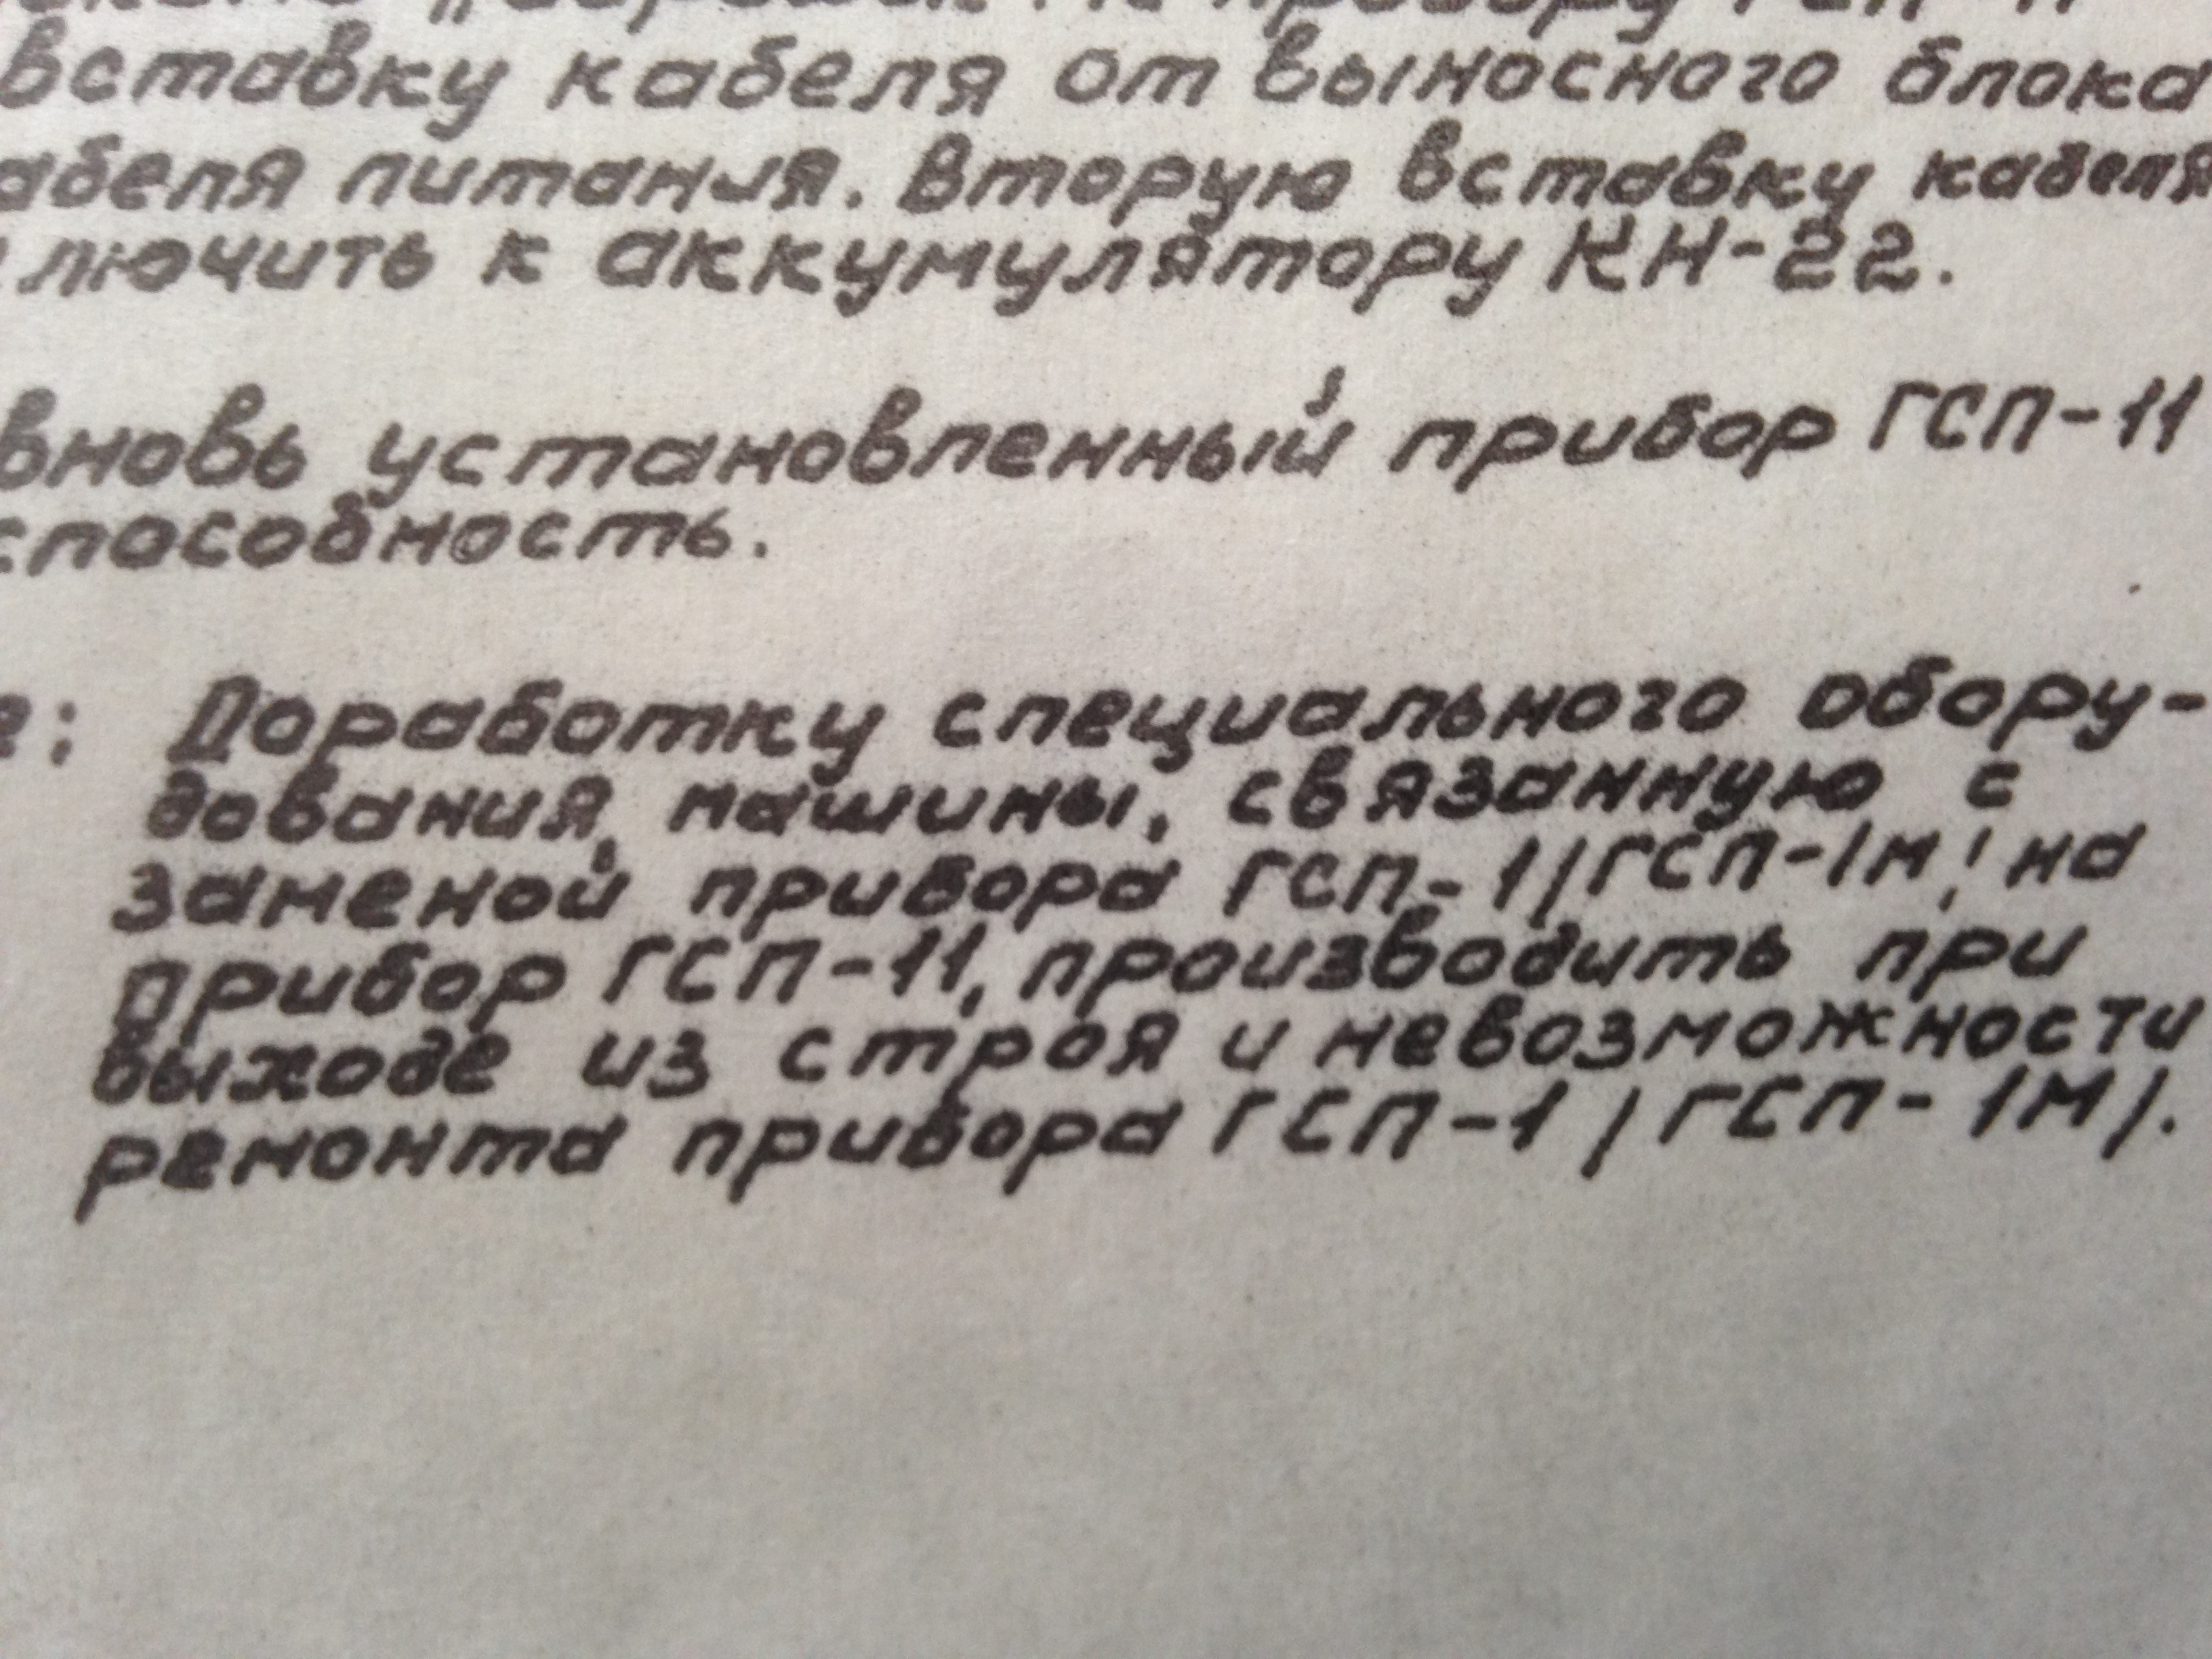 прибору ГСП-11
вставку кабеля от выносного блока
абеля питания. Вторую вставку кабеля
лючить к аккумулятору КН-22.
вновь установленный прибор ГСП-11
способность.
е: Доработку специального обору-
дования машины, связанную с
заменой прибора ГСП-1/ГСП-1М/ на
прибор ГСП-11, производить при
выходе из строя и невозможности
ремонта прибора ГСП-1 /ГСП-1М/.